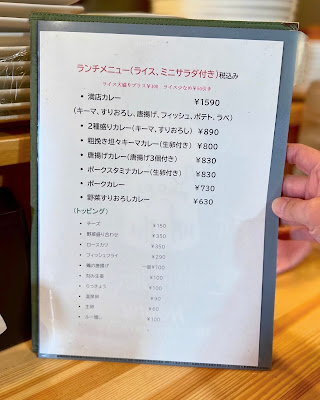 ランチメニュー（ライス、ミニサラダ付き）税込み
ライス大盛りプラス¥100 ライス少なめ¥50引き
・満店カレー ¥1590
（キーマ、すりおろし、唐揚げ、フィッシュ、ポテト、ラペ）
・2種盛りカレー（キーマ、すりおろし） ¥890
・粗挽き坦々キーマカレー（生卵付き） ¥800
・唐揚げカレー（唐揚げ3個付き） ¥830
・ポークスタミナカレー（生卵付き） ¥830
・ポークカレー ¥730
・野菜すりおろしカレー ¥630
（トッピング）
・チーズ ¥150
・野菜盛り合わせ ¥350
・ロースカツ ¥350
・フィッシュフライ ¥290
・鶏の唐揚げ 一個¥100
・¥100
・らっきょう ¥100
・温泉卵 ¥90
・生卵 ¥60
・ルー増し ¥100